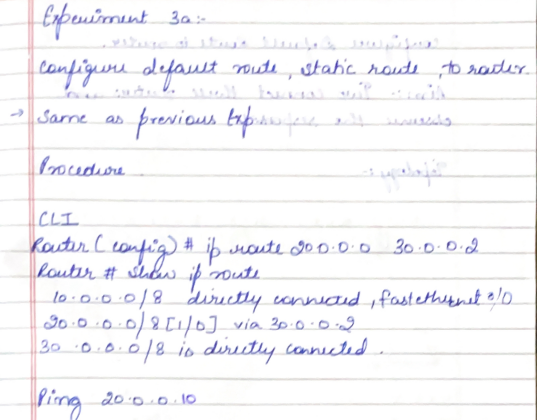 Experiment 3a:-
Configure default route, static route, to router.
→ Same as previous Exp
Procedure
CLI
Router(config)# ip route 20.0.0.0 30.0.0.2
Router # show ip route
10.0.0.0/8 directly connected, fastethernet 0/0
20.0.0.0/8 [1/0] via 30.0.0.2
30.0.0.0/8 is directly connected.
Ping 20.0.0.10